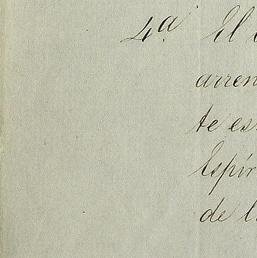 4ª El
arren
te es
Espír
de l